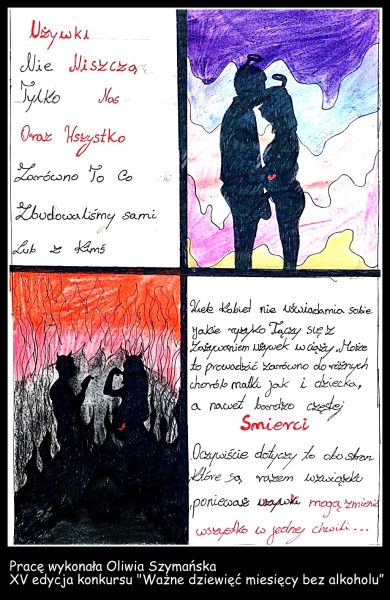 Używki
Nie Niszczą
Tylko Nas
Oraz Wszystko
Zarówno To Co
Zbudowaliśmy sami
Lub z Kimś
Wiele Kobiet nie uświadamia sobie
jakie ryzyko Łączy się z
Zażywaniem używek w ciąży. Może
to prowadzić zarówno do różnych
chorób matki jak i dziecka,
a nawet bardzo częstej
Śmierci
Oczywiście dotyczy to obu stron
które są razem w związku
ponieważ używki mogą zmienić
wszystko w jednej chwili...
Pracę wykonała Oliwia Szymańska
XV edycja konkursu "Ważne dziewięć miesięcy bez alkoholu"